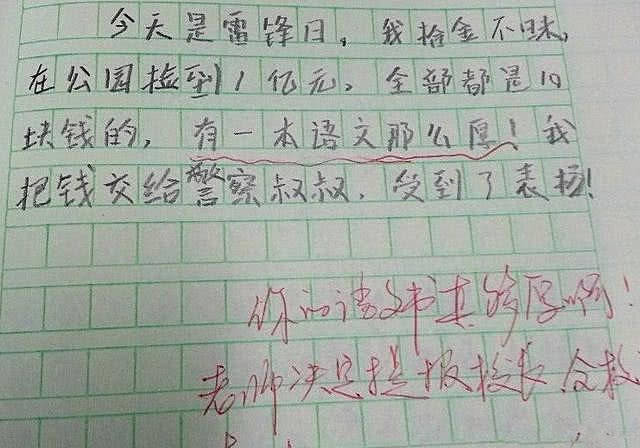 今天是雷锋日，我拾金不昧，
在公园捡到1亿元。全部都是10
块钱的，有一本语文那么厚！我
把钱交给警察叔叔，受到了表扬！
你的语文书真够厚啊！
老师决定提报校长 全校